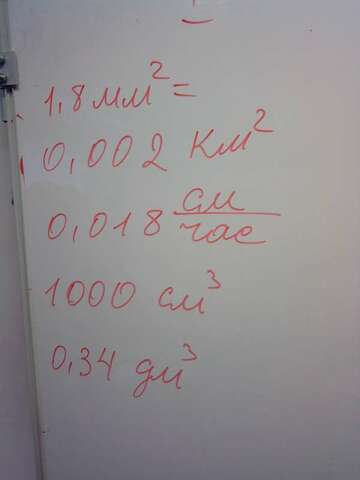 1,8 мм² =
0,002 км²
0,018 см/час
1000 см³
0,34 дм³